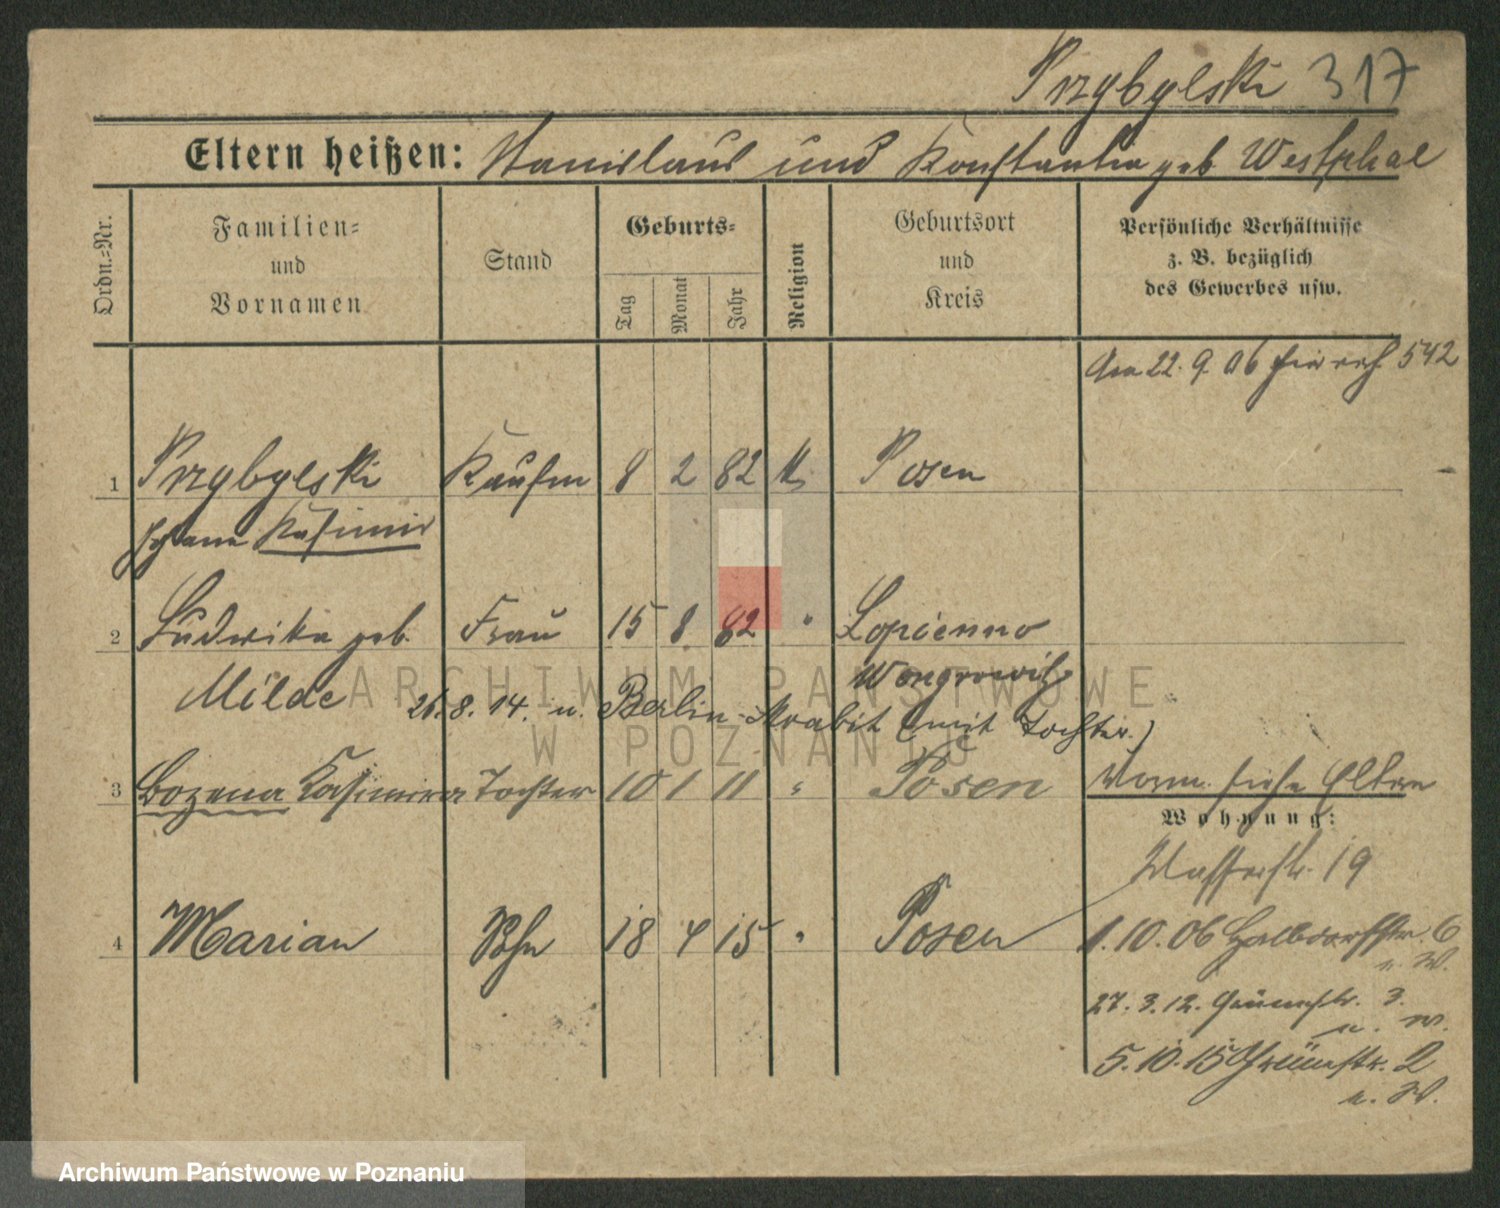 Przybylski 317
Eltern heißen: Stanislaus und Konstantia geb Westphal
Ordn.-Nr.
Familien-
und
Vornamen
Stand
Geburts-
Tag
Monat
Jahr
Religion
Geburtsort
und
Kreis
Persönliche Verhältnisse
z. B. bezüglich
des Gewerbes usw.
Am 22. 9. 06 542
1 Przybylski Kaufm 8 2 82 k. Posen
Johann Kasimir
2 Ludwika geb. Frau 15 8 82 " Lopienno
Milde Wongrowitz
26. 8. 14. n. Berlin-Moabit (mit Tochter.)
3 Bozena Kasimira Tochter 10 1 11 " Posen
Vorm. siehe Eltern
Wohnung:
Wasserstr. 19
4 Marian Sohn 18 4 15 " Posen
1. 10. 06 Halbdorfstr. 6
n. W.
27. 3. 12. Grünestr. 3.
n. W.
5. 10. 15 Grünestr. 2
n. W.
ARCHIWUM PAŃSTWOWE
W POZNANIU
Archiwum Państwowe w Poznaniu